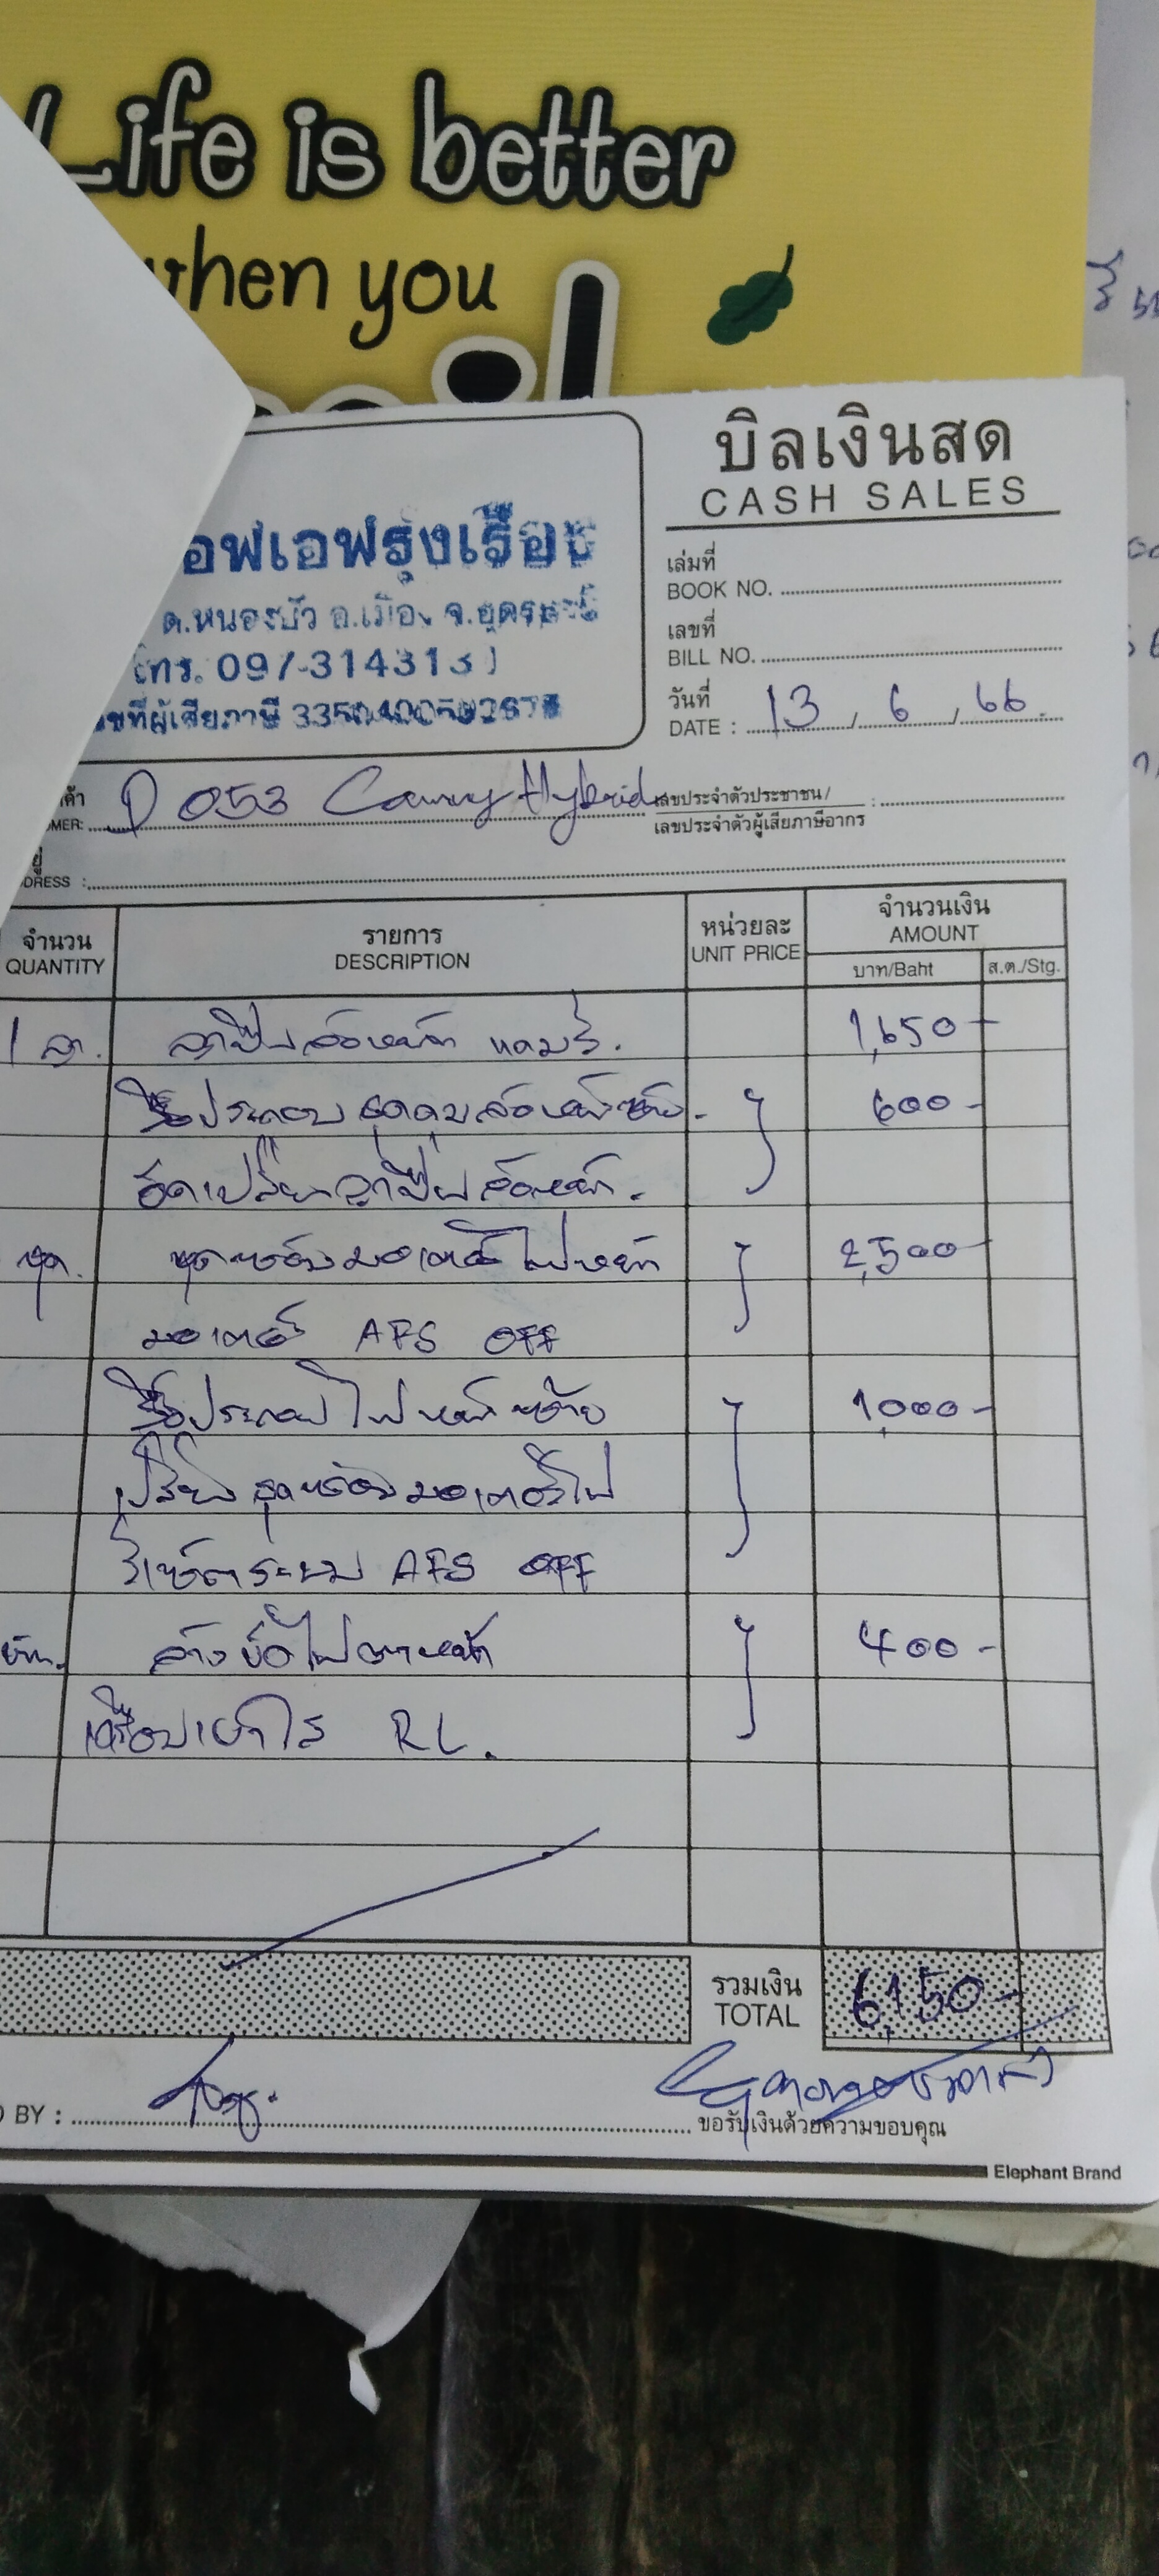 Life is better
when you
บิลเงินสด
CASH SALES
อฟเอฟรุ่งเรือง
ต.หนองบัว อ.เมือง จ.อุดรธานี
โทร. 097-314313
เลขที่ผู้เสียภาษี
เล่มที่
BOOK NO.
เลขที่
BILL NO.
วันที่
DATE : 13 / 6 / 66
ค้า
OMER: D 053 Camry Hybrid
เลขประจำตัวประชาชน/ :
เลขประจำตัวผู้เสียภาษีอากร
ยู่
DRESS :
จำนวน รายการ หน่วยละ จำนวนเงิน
QUANTITY DESCRIPTION UNIT PRICE AMOUNT
บาท/Baht ส.ต./Stg.
1 ลูก. ลูกปืนล้อหน้า แคมรี่. 1,650-
รื้อประกอบ ชุดดุมล้อหน้าซ้าย. 600-
อัดเปลี่ยนลูกปืนล้อหน้า.
ชุด. ชุดกล่องมอเตอร์ไฟหน้า 2,500-
มอเตอร์ AFS OFF
รื้อประกอบไฟหน้าซ้าย 1,000-
เปลี่ยนชุดกล่องมอเตอร์ไฟ
รีเซ็ตระบบ AFS OFF
ล้างขัดไฟตาหน้า 400-
เคลือบเงาใส RL.
รวมเงิน
TOTAL 6,150-
D BY :
ขอรับเงินด้วยความขอบคุณ
Elephant Brand